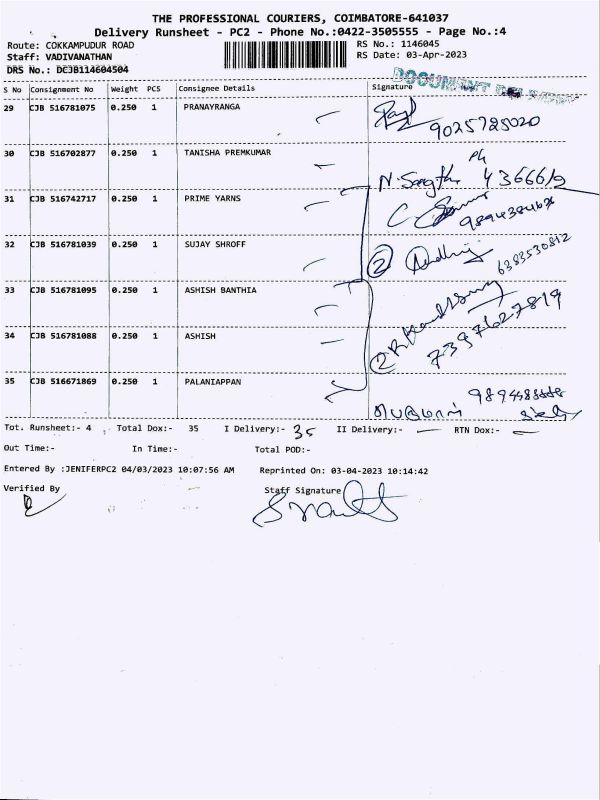 THE PROFESSIONAL COURIERS, COIMBATORE-641037
Delivery Runsheet - PC2 - Phone No.:0422-3505555 - Page No.:4
Route: COKKAMPUDUR ROAD RS No.: 1146045
Staff: VADIVANATHAN RS Date: 03-Apr-2023
DRS No.: DCJB114604504
DOCUMENT DELIVERY
S No Consignment No Weight PCS Consignee Details Signature
29 CJB 516781075 0.250 1 PRANAYRANGA
9025725020
30 CJB 516702877 0.250 1 TANISHA PREMKUMAR
Ph
N. 43666/9
31 CJB 516742717 0.250 1 PRIME YARNS
32 CJB 516781039 0.250 1 SUJAY SHROFF
② 6383530812
33 CJB 516781095 0.250 1 ASHISH BANTHIA
34 CJB 516781088 0.250 1 ASHISH
② 7397627819
35 CJB 516671869 0.250 1 PALANIAPPAN
Tot. Runsheet:- 4 , Total Dox:- 35 I Delivery:- 35 II Delivery:- — RTN Dox:- —
Out Time:- In Time:- Total POD:-
Entered By :JENIFERPC2 04/03/2023 10:07:56 AM Reprinted On: 03-04-2023 10:14:42
Verified By Staff Signature